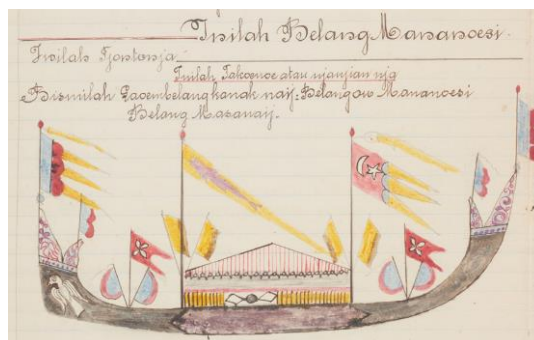 Inilah Belang Mananoesi.
Inilah Tjontonja
Inilah Takoenoe atau njanjian nja
Bismilah Laoembelangkanak naij: Belangow Mananoesi
Belang Masanaij.